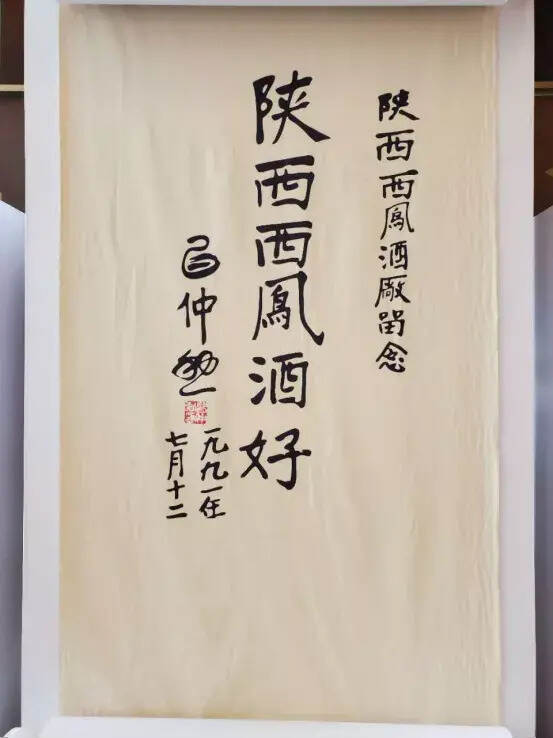 陕西西鳳酒厰留念
陕西西鳳酒好
習仲勛
一九九一年
七月十二